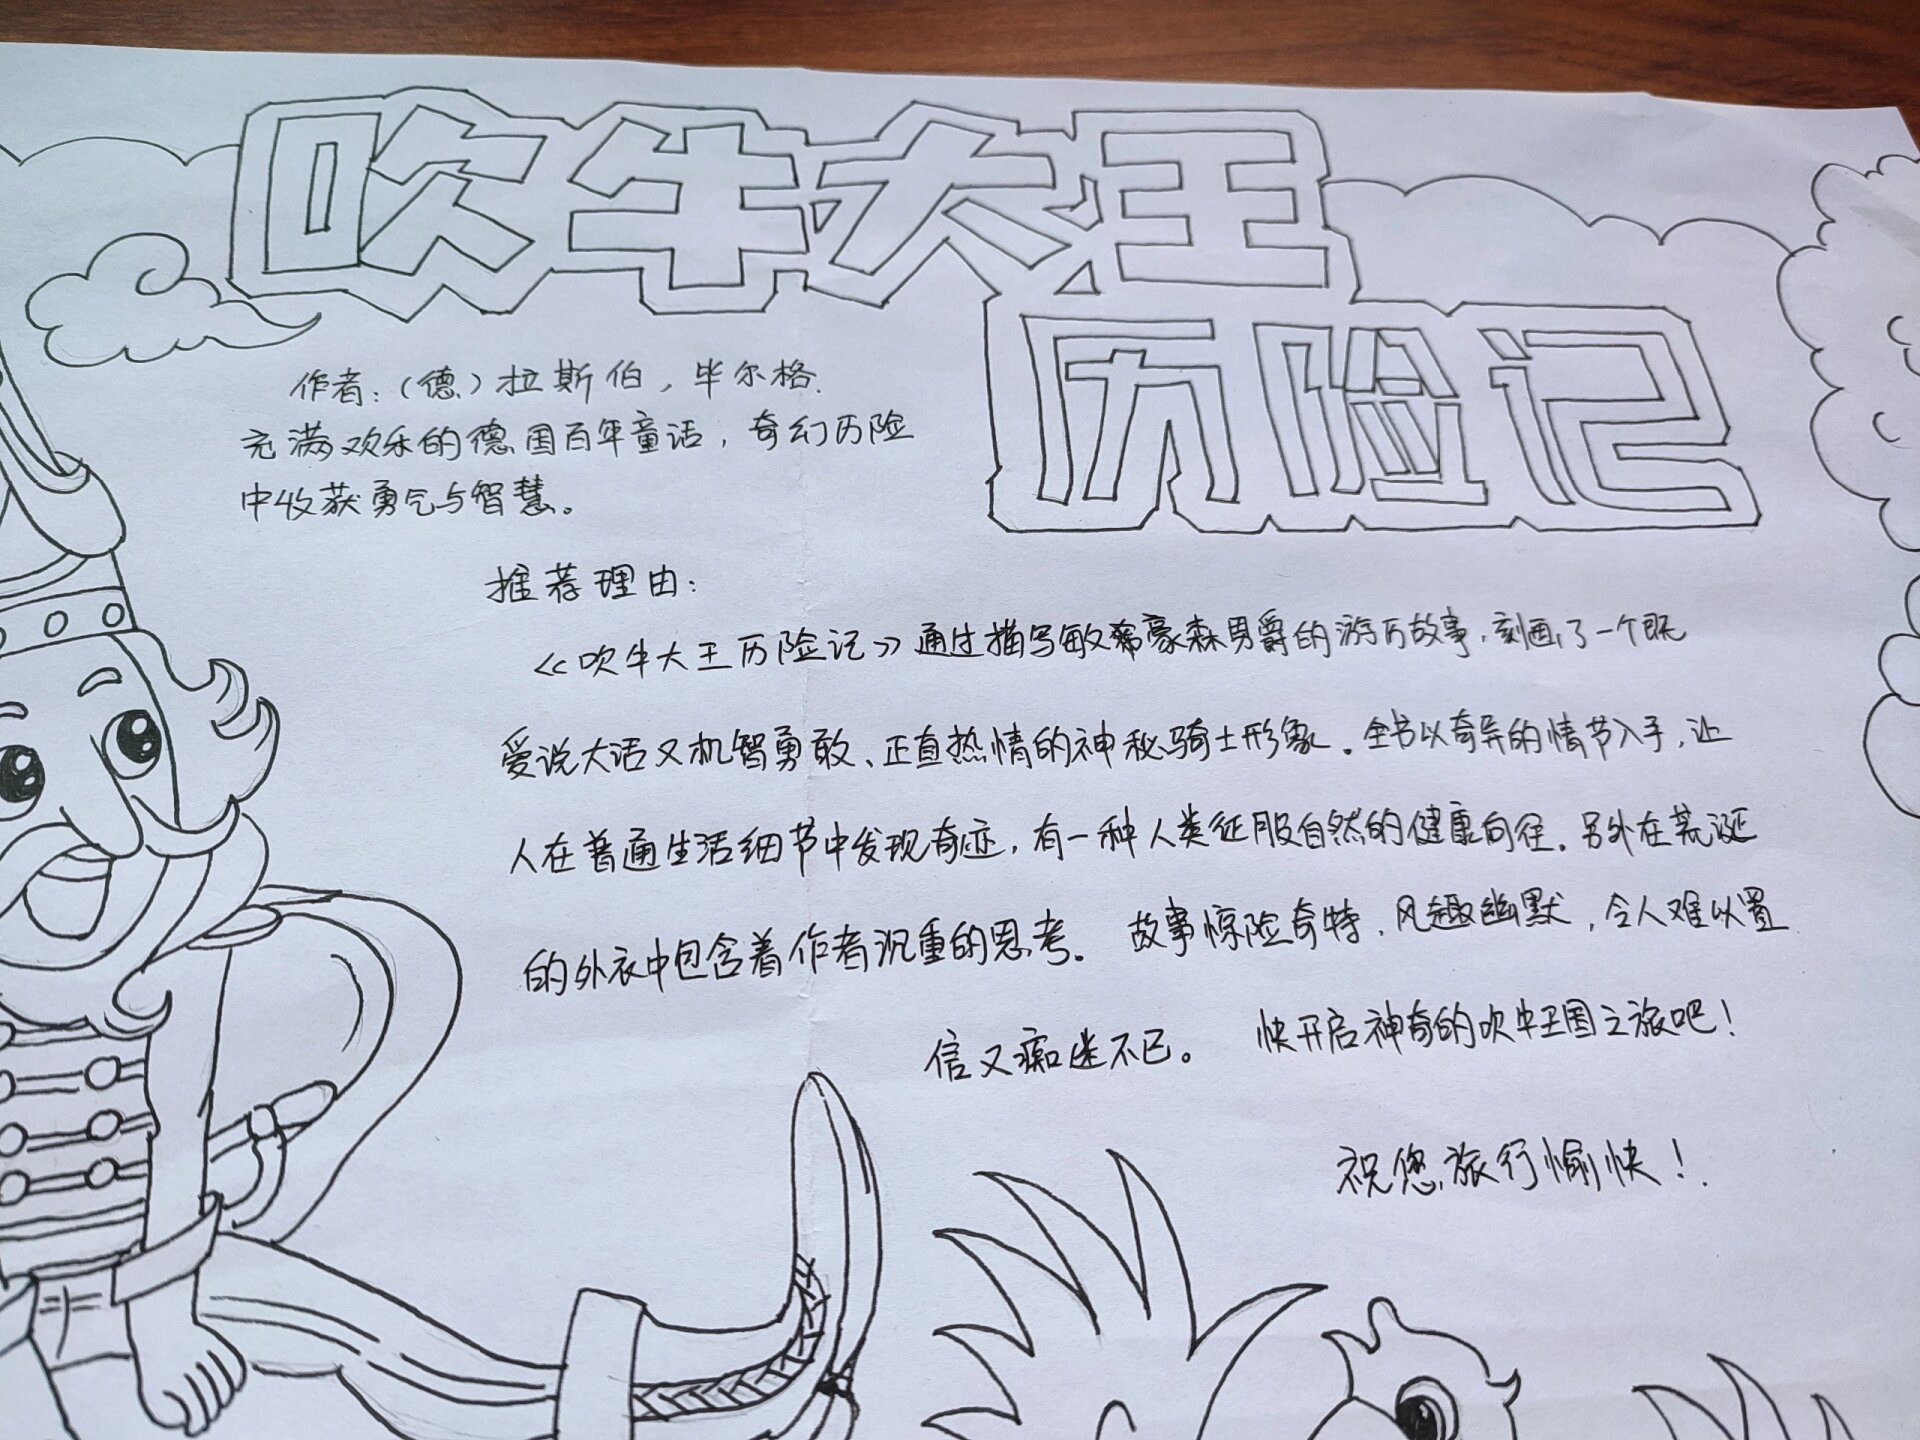 吹牛大王
历险记
作者：（德）拉斯伯，毕尔格.
充满欢乐的德国百年童话，奇幻历险
中收获勇气与智慧。
推荐理由：
《吹牛大王历险记》通过描写敏希豪森男爵的游历故事，刻画了一个既
爱说大话又机智勇敢、正直热情的神秘骑士形象。全书以奇异的情节入手，让
人在普通生活细节中发现奇迹，有一种人类征服自然的健康向往。另外在荒诞
的外衣中包含着作者沉重的思考。故事惊险奇特，风趣幽默，令人难以置
信又痴迷不已。 快开启神奇的吹牛王国之旅吧！
祝您旅行愉快！